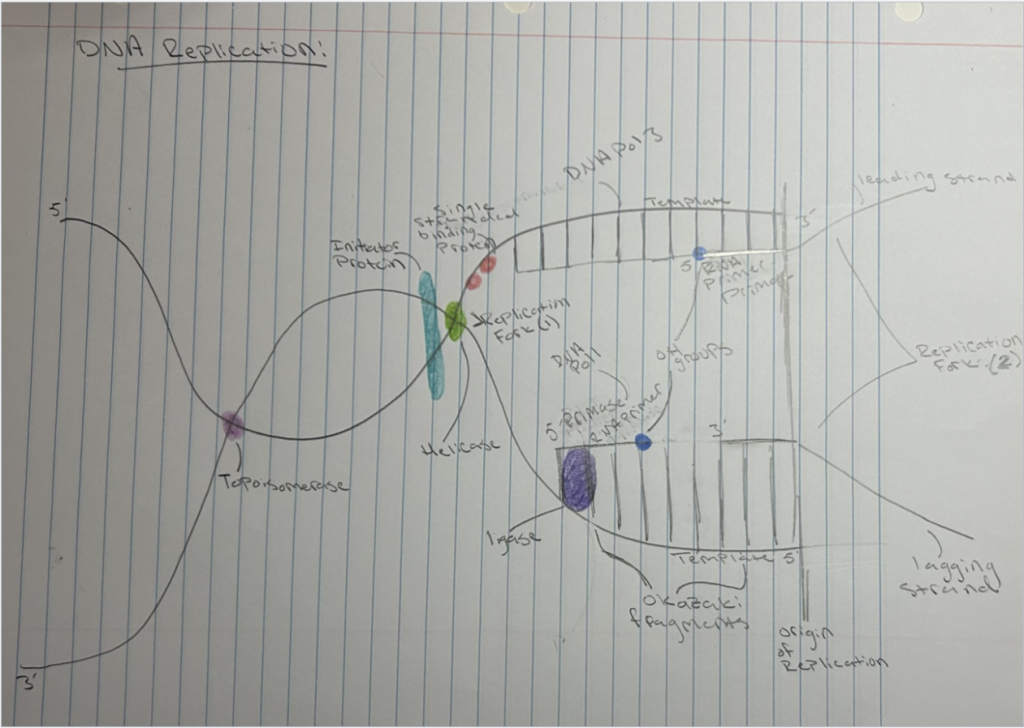 DNA Replication:
5'
DNA Pol 3
leading strand
Single
Stranded
binding
Protein
Template
3'
Initator
Protein
5'
RNA
Primer
Primase
Replication
Fork (1)
DNA
Pol 1
OH
groups
Replication
Fork: (2)
5'
Primase
RNA Primer
3'
Helicase
Topoisomerase
ligase
Template 5'
lagging
strand
Okazaki
fragments
origin
of
Replication
3'